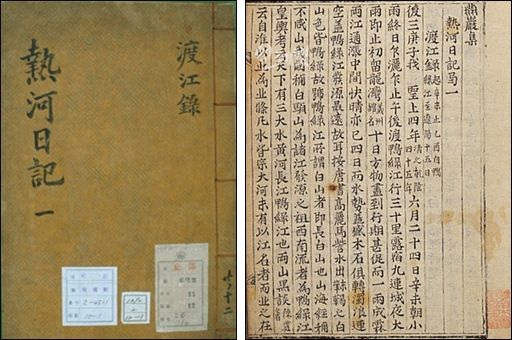 渡江錄
熱河日記 一
燕巖集
熱河日記卷一
渡江錄 起辛未止乙酉自鴨綠江至遼陽十五日
後三庚子我 聖上四年 淸乾隆四十五年 六月二十四日辛未朝小
雨終日乍灑乍止午後渡鴨綠江行三十里露宿九連城夜大
雨即止初留龍灣 義州館名 十日方物盡到行期甚促而一雨成霖
兩江通漲中間快晴亦已四日而水勢益盛木石俱轉濁浪連
空盖鴨綠江發源最遠故耳按唐書高麗馬訾水出靺鞨之白
山色若鴨綠故號鴨綠江所謂白山者即長白山也山海經稱
不咸山我國稱白頭山爲諸江發源之祖西南流者爲鴨綠江
皇輿考云天下有三大水黃河長江鴨綠江也兩山墨談 陳霆
云自淮以北爲北條凡水皆宗大河未有以江名者而北之在